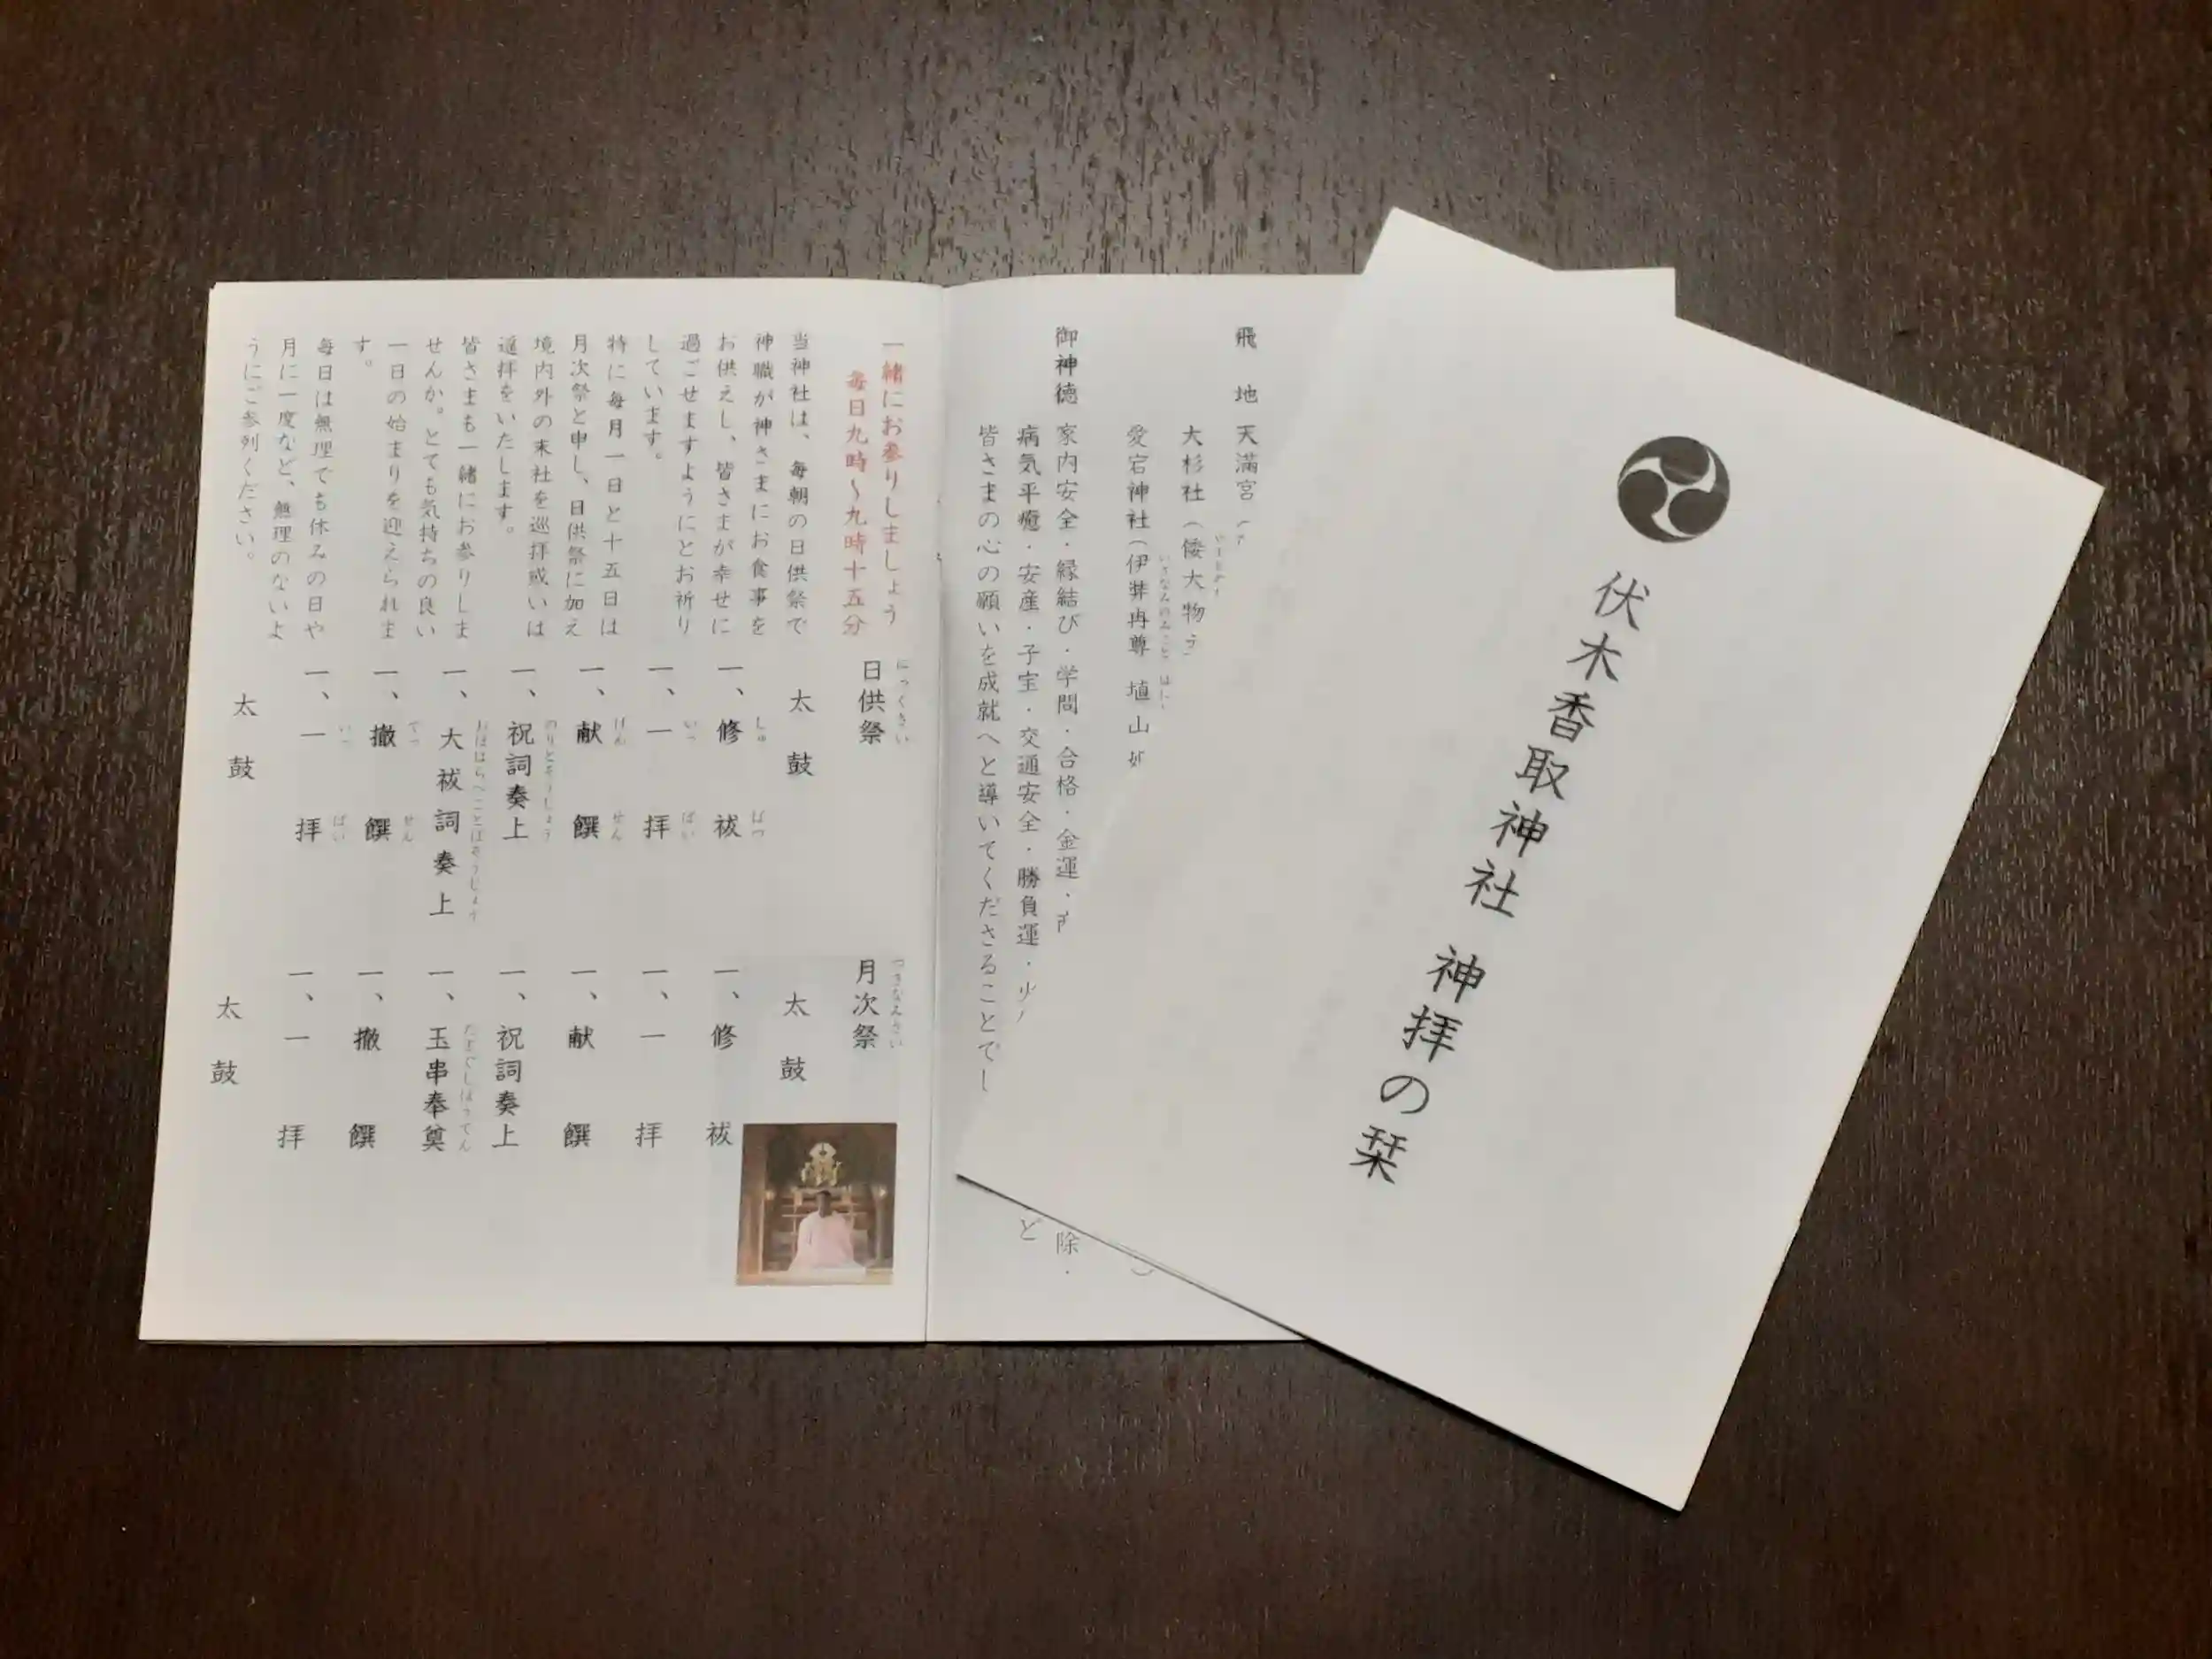 伏木香取神社 神拝の栞
飛地
天満宮
大杉社（倭大物
愛宕神社（伊弉冉尊 埴山
いさなみのみこと
御神徳
家内安全・縁結び・学問・合格・金運・
除・
病気平癒・安産・子宝・交通安全・勝負運・
ど
皆さまの心の願いを成就へと導いてくださることでし
一緒にお参りしましょう
毎日九時～九時十五分
当神社は、毎朝の日供祭で
神職が神さまにお食事を
お供えし、皆さまが幸せに
過ごせますようにとお祈り
しています。
特に毎月一日と十五日は
月次祭と申し、日供祭に加え
境内外の末社を巡拝或いは
遥拝をいたします。
皆さまも一緒にお参りしま
せんか。とても気持ちの良い
一日の始まりを迎えられま
す。
毎日は無理でも休みの日や
月に一度など、無理のないよ
うにご参列ください。
にっくさい
日供祭
太鼓
しゅ ばつ
一、修祓
いっ ぱい
一、一拝
けん せん
一、献饌
のりとそうじょう
一、祝詞奏上
おほはらへことばそうじょう
一、大祓詞奏上
てっ せん
一、撤饌
いっ ぱい
一、一拝
太鼓
つきなみさい
月次祭
太鼓
一、修祓
一、一拝
一、献饌
一、祝詞奏上
たまぐしほうてん
一、玉串奉奠
一、撤饌
一、一拝
太鼓